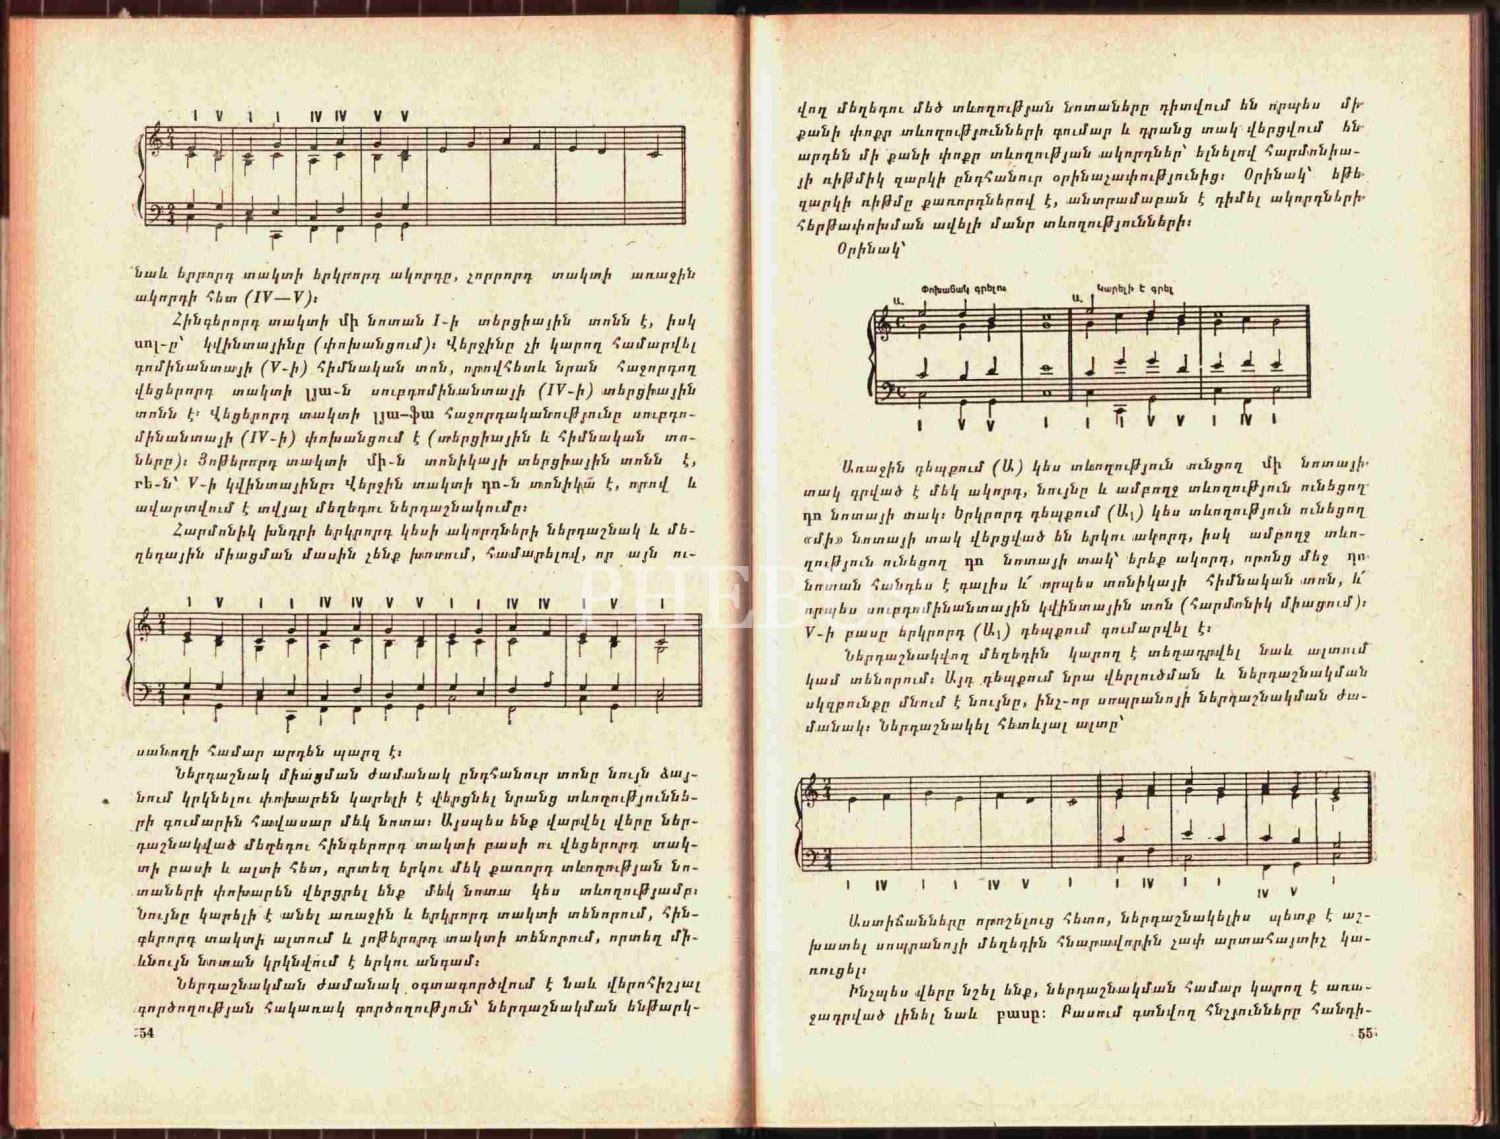 I V I I IV IV V V
նաև երրորդ տակտի երկրորդ ակորդը, չորրորդ տակտի առաջին
ակորդի հետ (IV—V)։
Հինգերորդ տակտի մի նոտան I-ի տերցիային տոնն է, իսկ
սոլ-ը՝ կվինտայինը (փոխանցում)։ Վերջինը չի կարող համարվել
դոմինանտայի (V-ի) հիմնական տոն, որովհետև նրան հաջորդող
վեցերորդ տակտի լյա-ն սուբդոմինանտայի (IV-ի) տերցիային
տոնն է։ Վեցերորդ տակտի լյա-ֆա հաջորդականությունը սուբդո-
մինանտայի (IV-ի) փոխանցում է (տերցիային և հիմնական տո-
ները)։ Յոթերորդ տակտի մի-ն տոնիկայի տերցիային տոնն է,
րե-ն՝ V-ի կվինտայինը։ Վերջին տակտի դո-ն տոնիկա է, որով և
ավարտվում է տվյալ մեղեդու ներդաշնակումը։
Հարմոնիկ խնդրի երկրորդ կեսի ակորդների ներդաշնակ և մե-
ղեդային միացման մասին չենք խոսում, համարելով, որ այն ու-
I V I I IV IV V V I I IV IV I V I
սանողի համար արդեն պարզ է։
Ներդաշնակ միացման ժամանակ ընդհանուր տոնը նույն ձայ-
նում կրկնելու փոխարեն կարելի է վերցնել նրանց տևողություննե-
րի գումարին հավասար մեկ նոտա։ Այսպես ենք վարվել վերը ներ-
դաշնակված մեղեդու հինգերորդ տակտի բասի ու վեցերորդ տակ-
տի բասի և ալտի հետ, որտեղ երկու մեկ քառորդ տևողության նո-
տաների փոխարեն վերցրել ենք մեկ նոտա կես տևողությամբ։
Նույնը կարելի է անել առաջին և երկրորդ տակտի տենորում, հին-
գերորդ տակտի ալտում և յոթերորդ տակտի տենորում, որտեղ մի-
ևնույն նոտան կրկնվում է երկու անգամ։
Ներդաշնակման ժամանակ օգտագործվում է նաև վերոհիշյալ
գործողության հակառակ գործողություն՝ ներդաշնակման ենթարկ-
54
վող մեղեդու մեծ տևողության նոտաները դիտվում են որպես մի
քանի փոքր տևողությունների գումար և դրանց տակ վերցվում են
արդեն մի քանի փոքր տևողության ակորդներ՝ ելնելով հարմոնիա-
յի ռիթմիկ զարկի ընդհանուր օրինաչափությունից։ Օրինակ՝ եթե
զարկի ռիթմը քառորդներով է, անտրամաբան է դիմել ակորդների
հերթափոխման ավելի մանր տևողությունների։
Օրինակ՝
Փոխանակ գրելու Կարելի է գրել
Ա. Ա₁
I V V I I I V V I IV I
Առաջին դեպքում (Ա) կես տևողություն ունեցող մի նոտայի
տակ գրված է մեկ ակորդ, նույնը և ամբողջ տևողություն ունեցող
դո նոտայի տակ։ Երկրորդ դեպքում (Ա₁) կես տևողություն ունեցող
«մի» նոտայի տակ վերցված են երկու ակորդ, իսկ ամբողջ տևո-
ղություն ունեցող դո նոտայի տակ՝ երեք ակորդ, որոնց մեջ դո
նոտան հանդես է գալիս և՛ որպես տոնիկայի հիմնական տոն, և՛
որպես սուբդոմինանտային կվինտային տոն (հարմոնիկ միացում)։
V-ի բասը երկրորդ (Ա₁) դեպքում գումարվել է։
Ներդաշնակվող մեղեդին կարող է տեղադրվել նաև ալտում
կամ տենորում։ Այդ դեպքում նրա վերլուծման և ներդաշնակման
սկզբունքը մնում է նույնը, ինչ-որ սոպրանոյի ներդաշնակման ժա-
մանակ։ Ներդաշնակել հետևյալ ալտը՝
I IV I I IV V I I IV I I IV V I
Աստիճանները որոշելուց հետո, ներդաշնակելիս պետք է աշ-
խատել սոպրանոյի մեղեդին հնարավորին չափ արտահայտիչ կա-
ռուցել։
Ինչպես վերը նշել ենք, ներդաշնակման համար կարող է առա-
ջադրված լինել նաև բասը։ Բասում գտնվող հնչյունները հանդի-
55